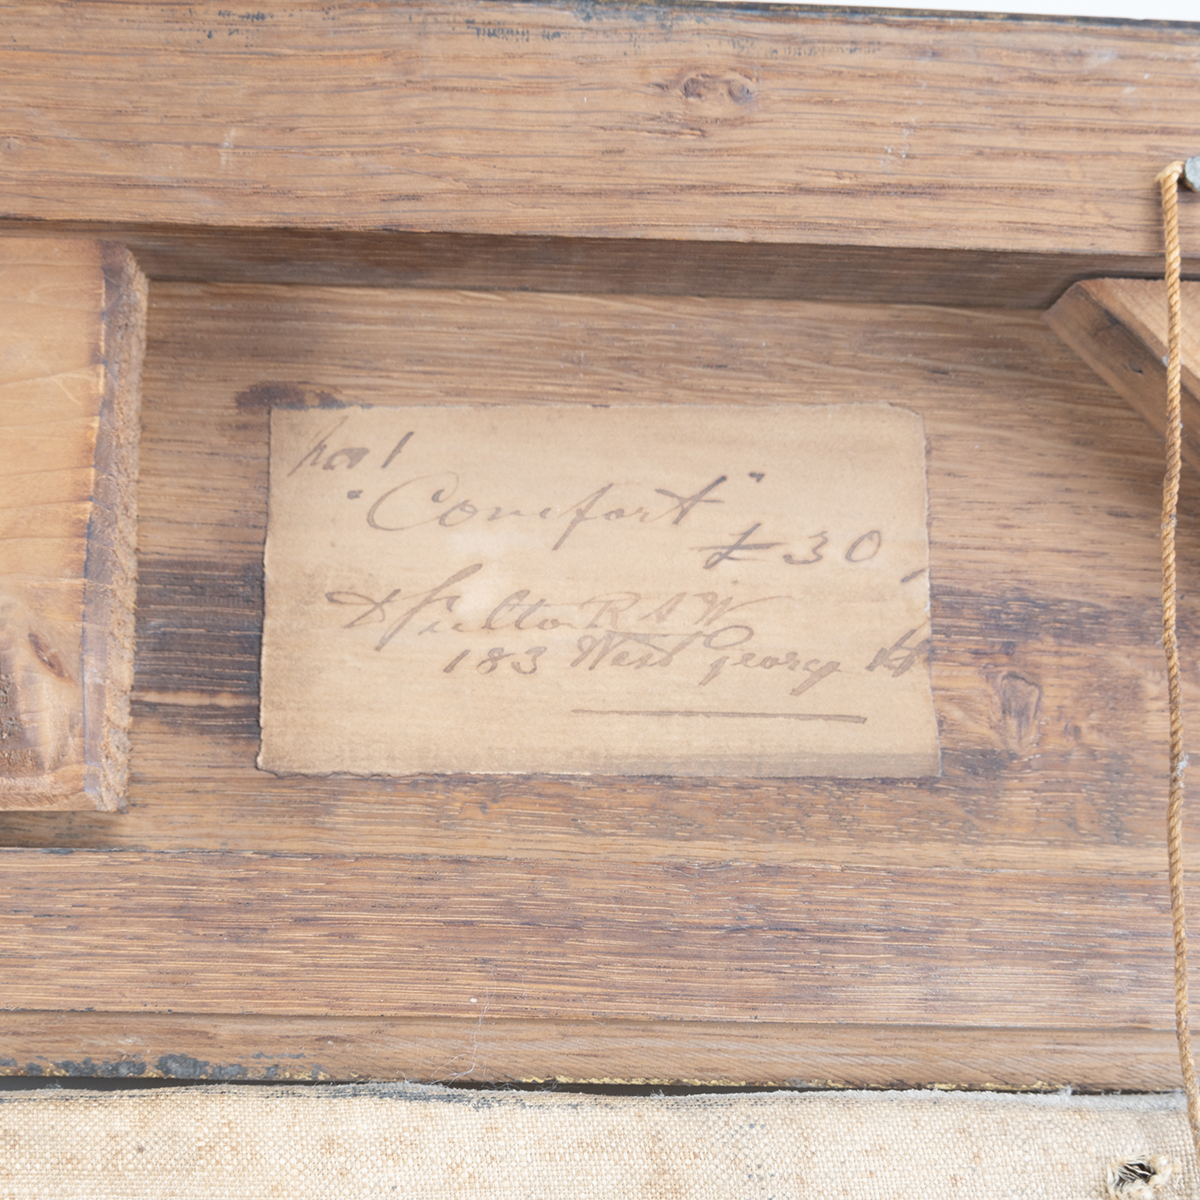 No 1
"Comfort"
£30
D Fulton R S W
183 West George St